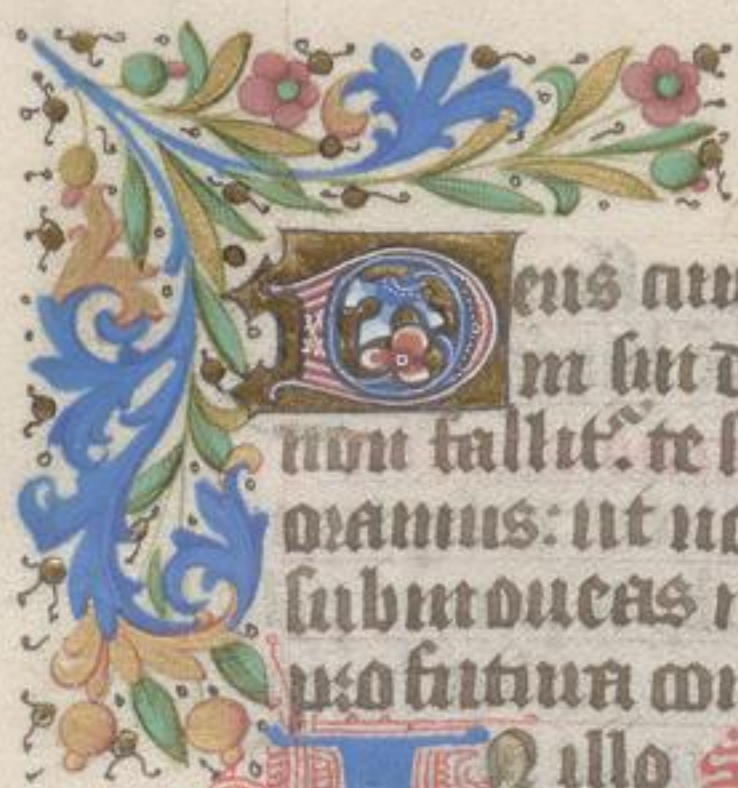 Deus cuiu
in sui d
non fallit᷑. te s
oramus: ut no
submoueas
profutura con
In illo